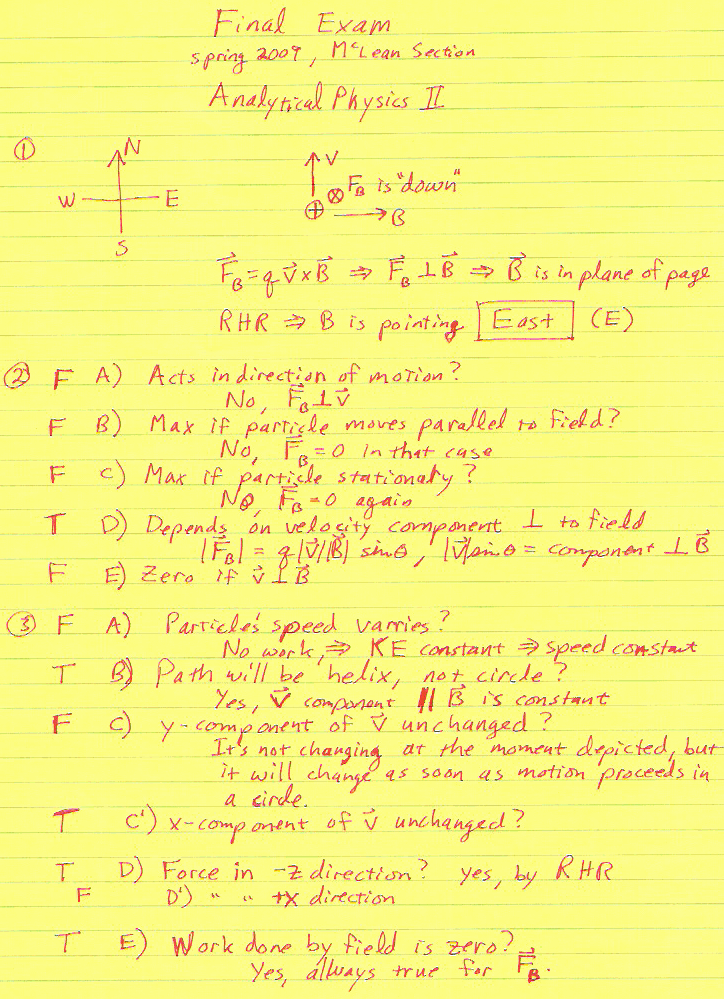 Final Exam
spring 2009, McLean Section
Analytical Physics II
① N
W E
S
V
F_B is "down"
B
F⃗_B = q v⃗ x B⃗ ⇒ F⃗_B ⊥ B⃗ ⇒ B⃗ is in plane of page
RHR ⇒ B is pointing East (E)
② F A) Acts in direction of motion?
No, F⃗_B ⊥ v⃗
F B) Max if particle moves parallel to field?
No, F⃗_B = 0 in that case
F C) Max if particle stationary?
No, F⃗_B = 0 again
T D) Depends on velocity component ⊥ to field
|F⃗_B| = q |v⃗||B⃗| sinθ, |v⃗|sinθ = component ⊥ B⃗
F E) Zero if v⃗ ⊥ B⃗
③ F A) Particle's speed varries?
No work, ⇒ KE constant ⇒ speed constant
T B) Path will be helix, not circle?
Yes, v⃗ component || B⃗ is constant
F C) y-component of v⃗ unchanged?
It's not changing at the moment depicted, but
it will change as soon as motion proceeds in
a circle.
T C') x-component of v⃗ unchanged?
T D) Force in -z direction? yes, by RHR
F D') " " +x direction
T E) Work done by field is zero?
Yes, always true for F⃗_B.